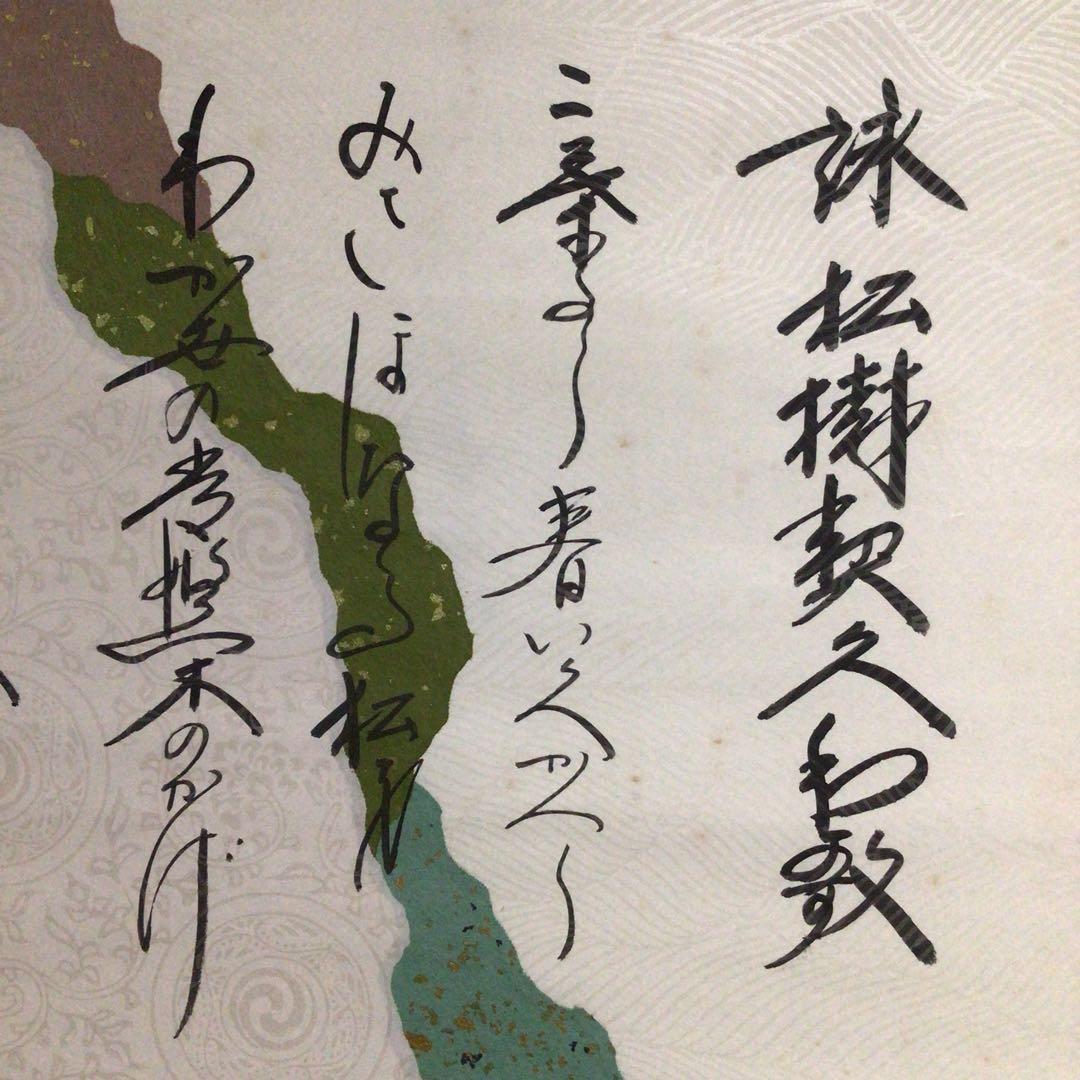 詠松樹契久和歌
二葉より春いくかへり
みさほなる松
わか世の常盤木のかげ